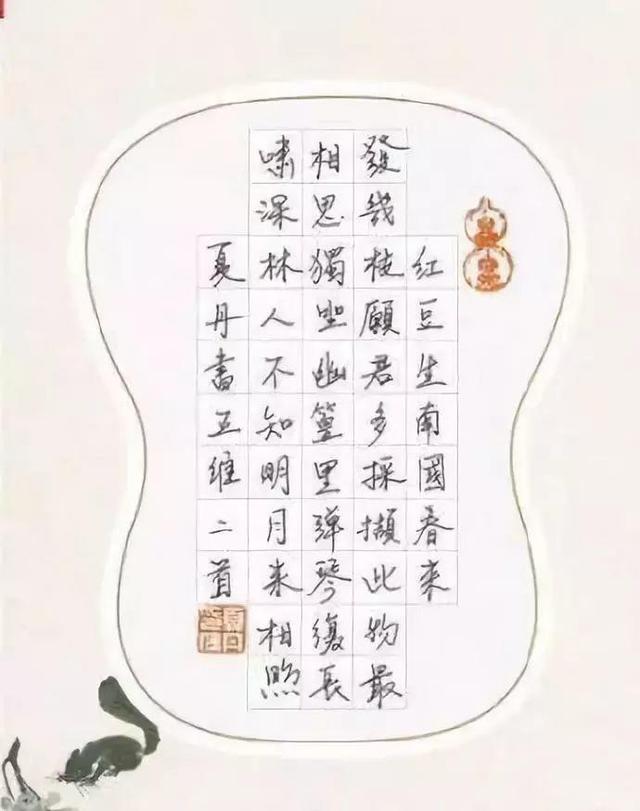 红豆生南國春来
發幾枝願君多採擷此物最
相思獨坐幽篁里弹琴復長
嘯深林人不知明月来相照
夏丹書王维二首